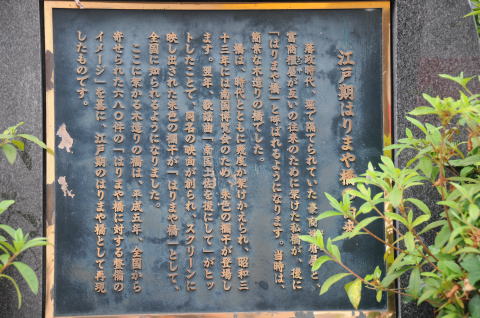 江戸期はりまや橋
藩政時代、堀で隔てられていた
富商櫃屋が互いの往来のために架けた私橋が、後に
「はりまや橋」と呼ばれるようになります。当時は、
簡素な木造りの橋でした。
橋は、時代とともに幾度か架けかえられ、昭和三
十三年には南国博覧会のため、朱色の欄干が登場し
ます。翌年、歌謡曲「南国土佐を後にして」がヒッ
トしたことで、同名の映画が創られ、スクリーンに
映し出された朱色の欄干が「はりまや橋」として、
全国に知られるようになりました。
ここに架かる木造りの橋は、平成五年、全国から
寄せられた六八〇件の「はりまや橋に対する反響の
イメージ」を基に、江戸期のはりまや橋として再現
したものです。